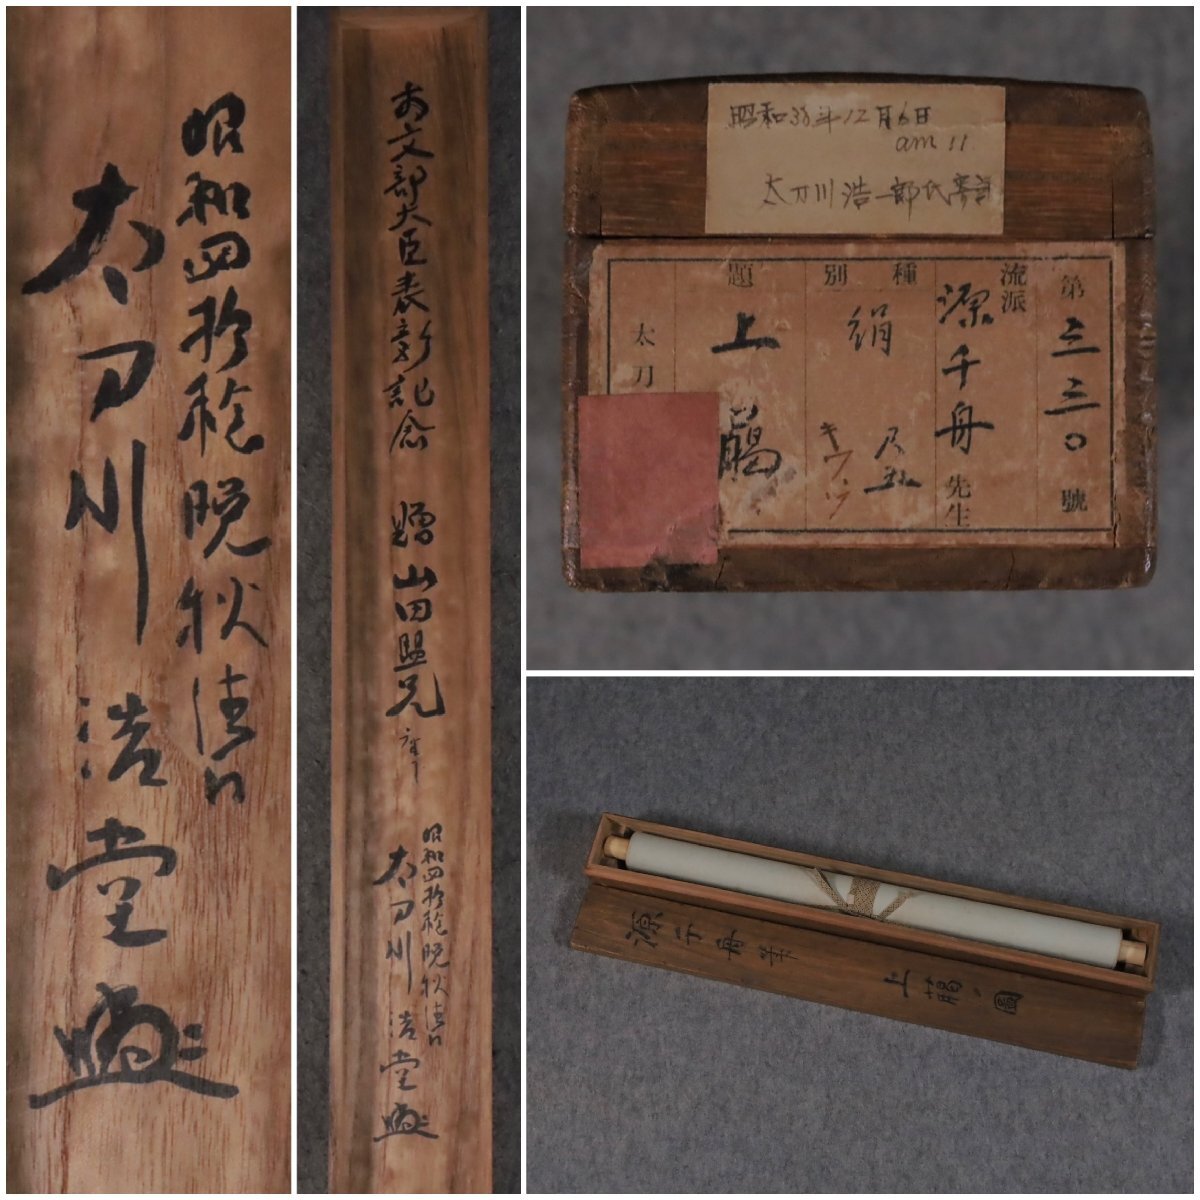 昭和四拾稔晩秋佳日
太刀川浩堂
為文部大臣表彰記念 贈山田盟兄
昭和四拾稔晩秋佳日
太刀川浩堂
昭和38年12月6日
am 11
太刀川浩一郎氏寄贈
第三三〇號
流派 源千舟先生
種別 絹 尺五
題 上﨟
太刀
源千舟筆 上﨟ノ圖